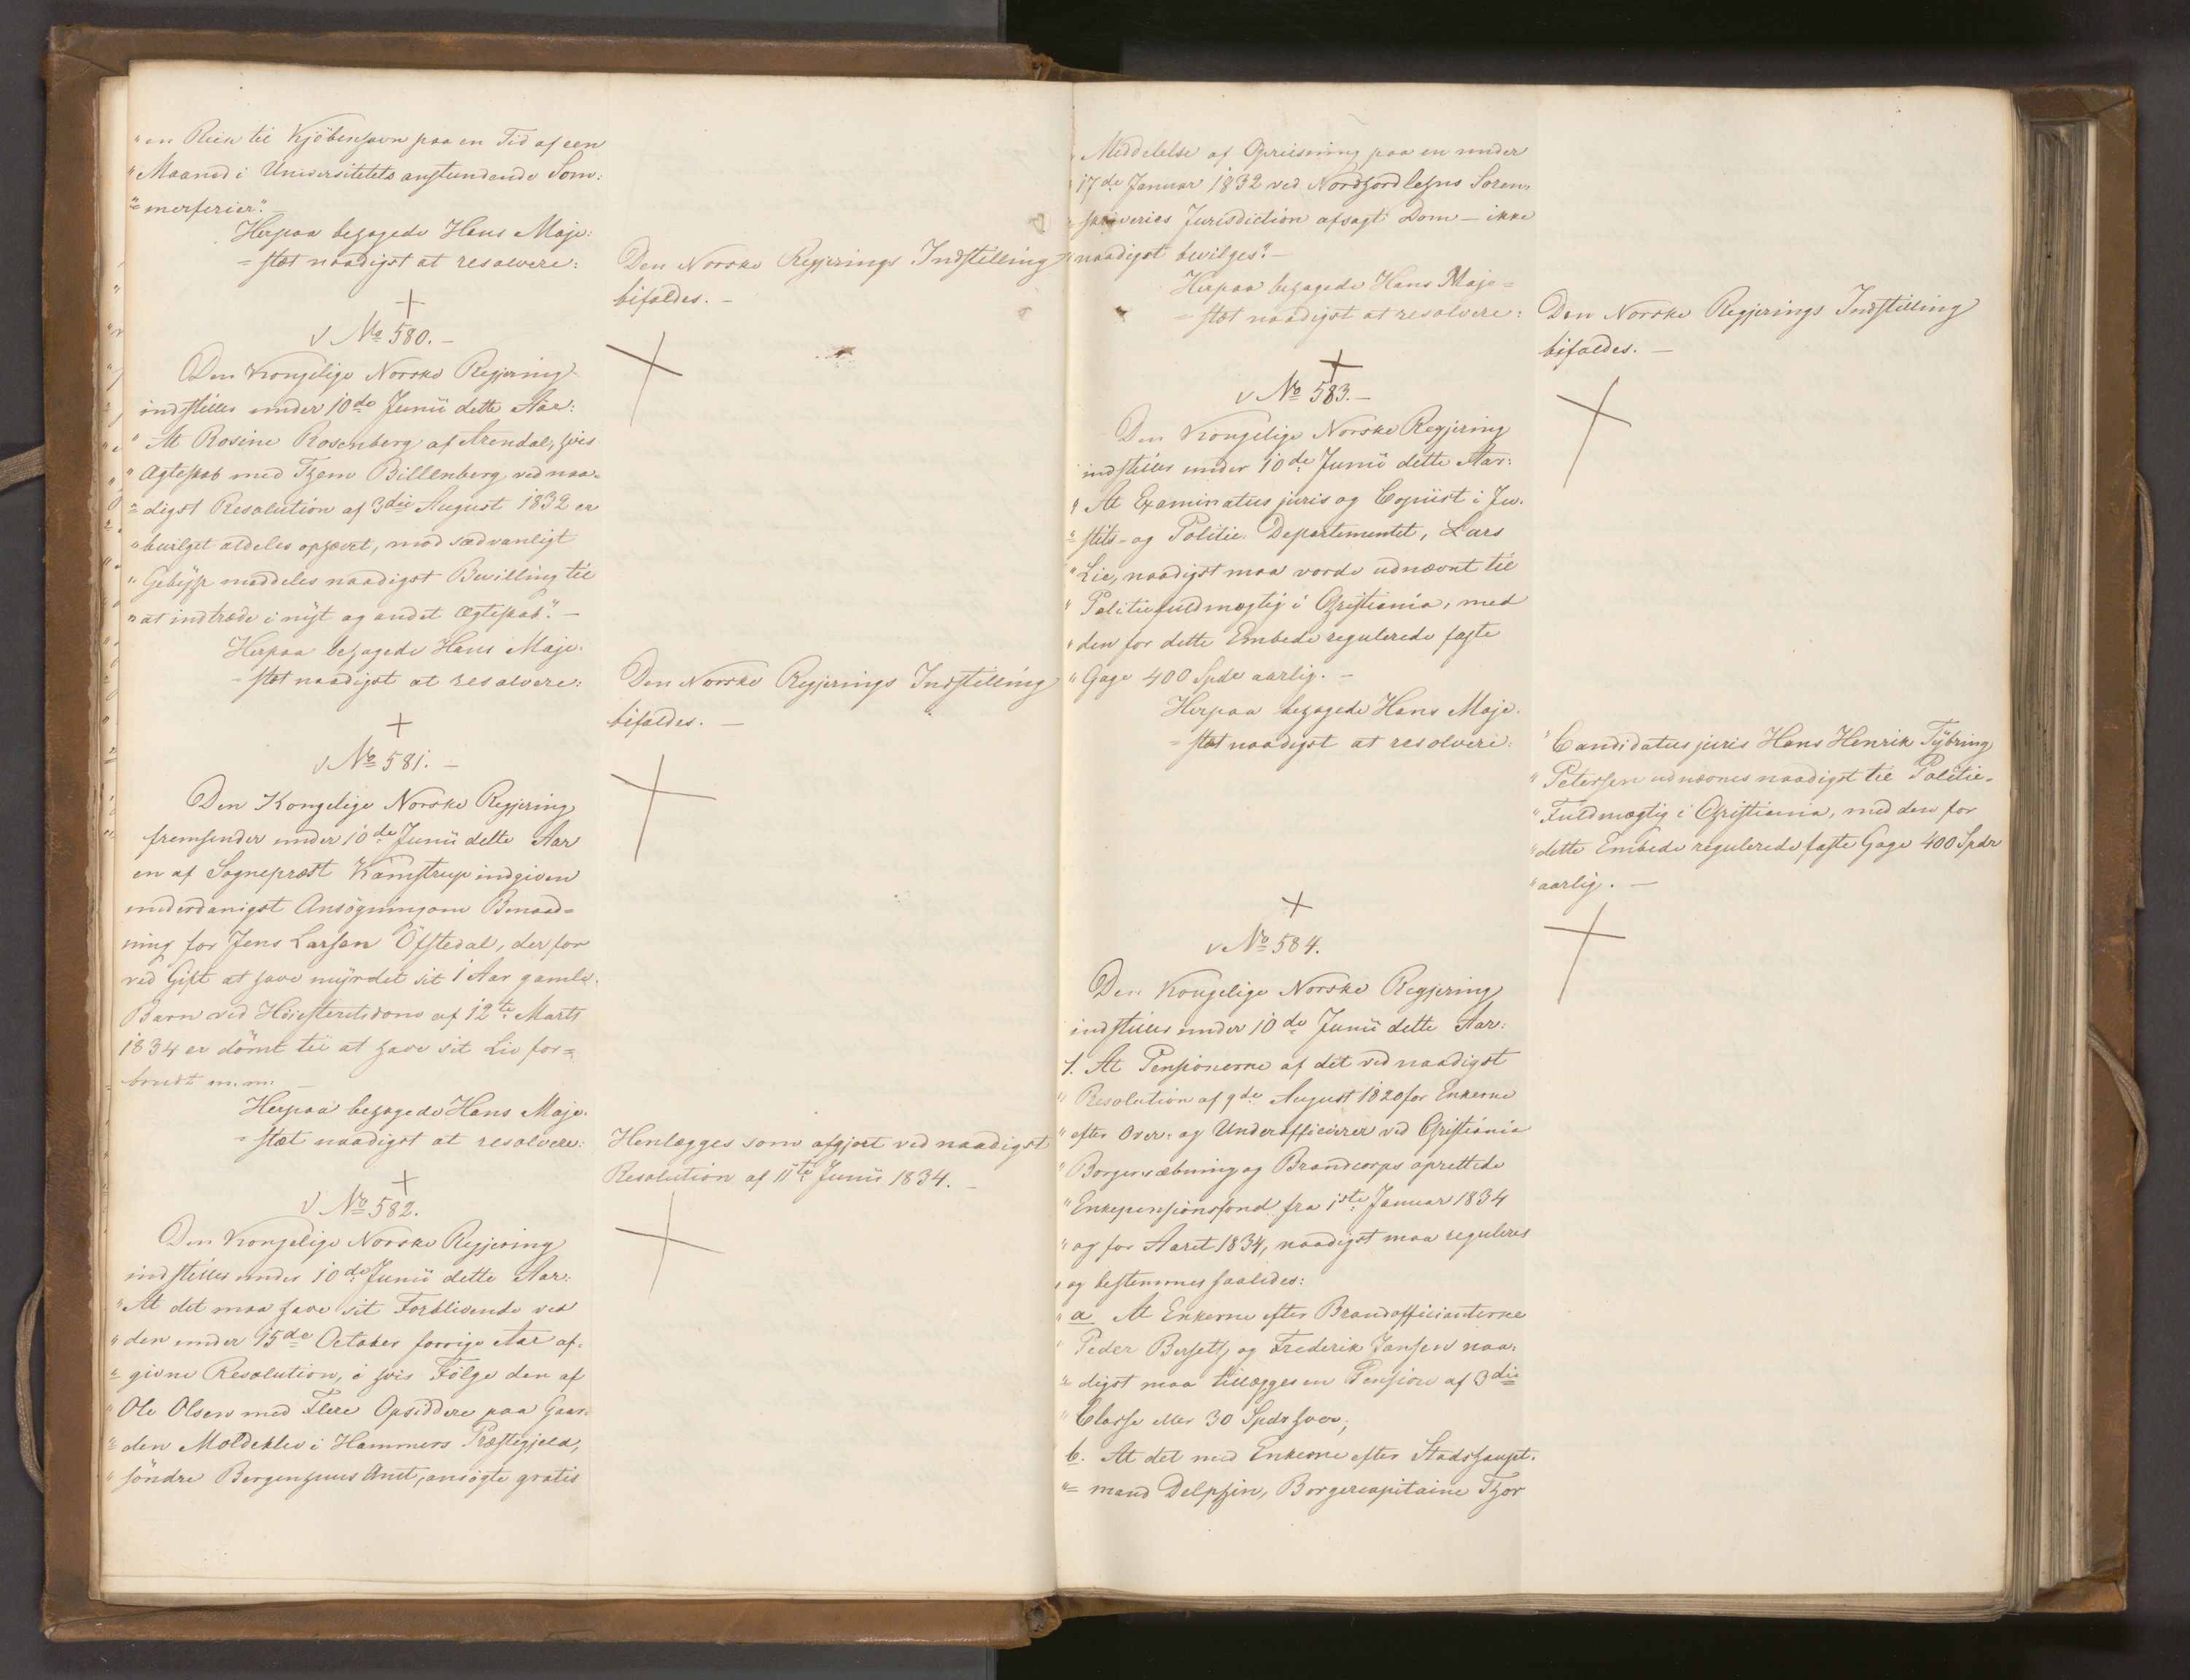 "en Reise til Kjöbenhavn paa en Tid af een
"Maaned i Universitetets anstundende Som:
"=merferier". –
Herpaa behagede Hans Maje:
=stæt naadigst at resolvere:
Den Norske Regjerings Indstilling
bifaldes. –
√ No 580. –
Den Kongelige Norske Regjering
indstiller under 10de Junii dette Aar:
"At Rosine Rosenberg af Arendal, hvis
"Ægteskab med Them Billenberg ved naa-
"=digst Resolution af 3die August 1832 er
"bevilget aldeles ophævet, mod sædvanligt
"Gebyhr meddeles naadigst Bevilling til
"at indtræde i nyt og andet Ægteskab". –
Herpaa behagede Hans Maje:
=stæt naadigst at resolvere:
Den Norske Regjerings Indstilling
bifaldes. –
√ No 581. –
Den Kongelige Norske Regjering
fremsender under 10de Junii dette Aar
en af Sognepræst Kamstrup indgiven
underdanigst Ansögning om Benaad=
ning for Jens Larsen Öfstedal, der for
ved Gift at have myrdet sit 1 Aar gamle
Barn ved Höiesteretsdom af 12te Marts
1834 er dömt til at have sit Liv for=
brudt m. m. –
Herpaa behagede Hans Maje-
=stæt naadigst at resolvere:
Henlægges som afgjort ved naadigst
Resolution af 11te Junii 1834. –
√ No 582.
Den Kongelige Norske Regjering
indstiller under 10de Junii dette Aar:
"At det maa have sit Forblivende ved
"den under 15de October forrige Aar af-
"=givne Resolution, i hvis Fölge den af
"Ole Olsen med Flere Opsiddere paa Gaar-
"=den Moldeklev i Hammers Præstegjeld,
"söndre Bergenhuus Amt, ansögte gratis
"Meddelelse af Opreisning paa en under
"17de Januar 1832 ved Nordhordlehns Soren-
"=skriveries Jurisdiction afsagt Dom – ikke
"naadigst bevilges". –
Herpaa behagede Hans Maje=
=stæt naadigst at resolvere:
Den Norske Regjerings Indstilling
bifaldes. –
√ No 583. –
Den Kongelige Norske Regjering
indstiller under 10de Junii dette Aar:
"At Examinatus juris og Copiist i Ju-
"=stits- og Politie Departementet, Lars
"Lie, naadigst maa vorde udnævnt til
"Politiefuldmægtig i Christiania, med
"den for dette Embede regulerede faste
"Gage 400 Spdr aarlig. –
Herpaa behagede Hans Maje-
=stæt naadigst at resolvere:
"Candidatus juris Hans Henrik Tybring
"Petersen udnævnes naadigst til Politie-
"Fuldmægtig i Christiania, med den for
"dette Embede regulerede faste Gage 400 Spdr
"aarlig. –
√ No 584.
Den Kongelige Norske Regjering
indstiller under 10de Junii dette Aar:
1. At Pensionerne af det ved naadigst
"Resolution af 9de August 1820 for Enkerne
"efter Over- og Underofficierer ved Christiania
"Borgervæbning og Brandcorps oprettede
"Enkepensionsfond fra 1ste Januar 1834
"og for Aaret 1834, naadigst maa reguleres
"og bestemmes saaledes:
"a. At Enkerne efter Brandofficianterne
"Peder Berseth og Frederik Jansen naa-
"=digst maa tillægges en Pension af 3die
"Classe eller 30 Spdr hver;
b. At det med Enkerne efter Stadshaupt-
"=mand Delphin, Borgercapitaine Thor